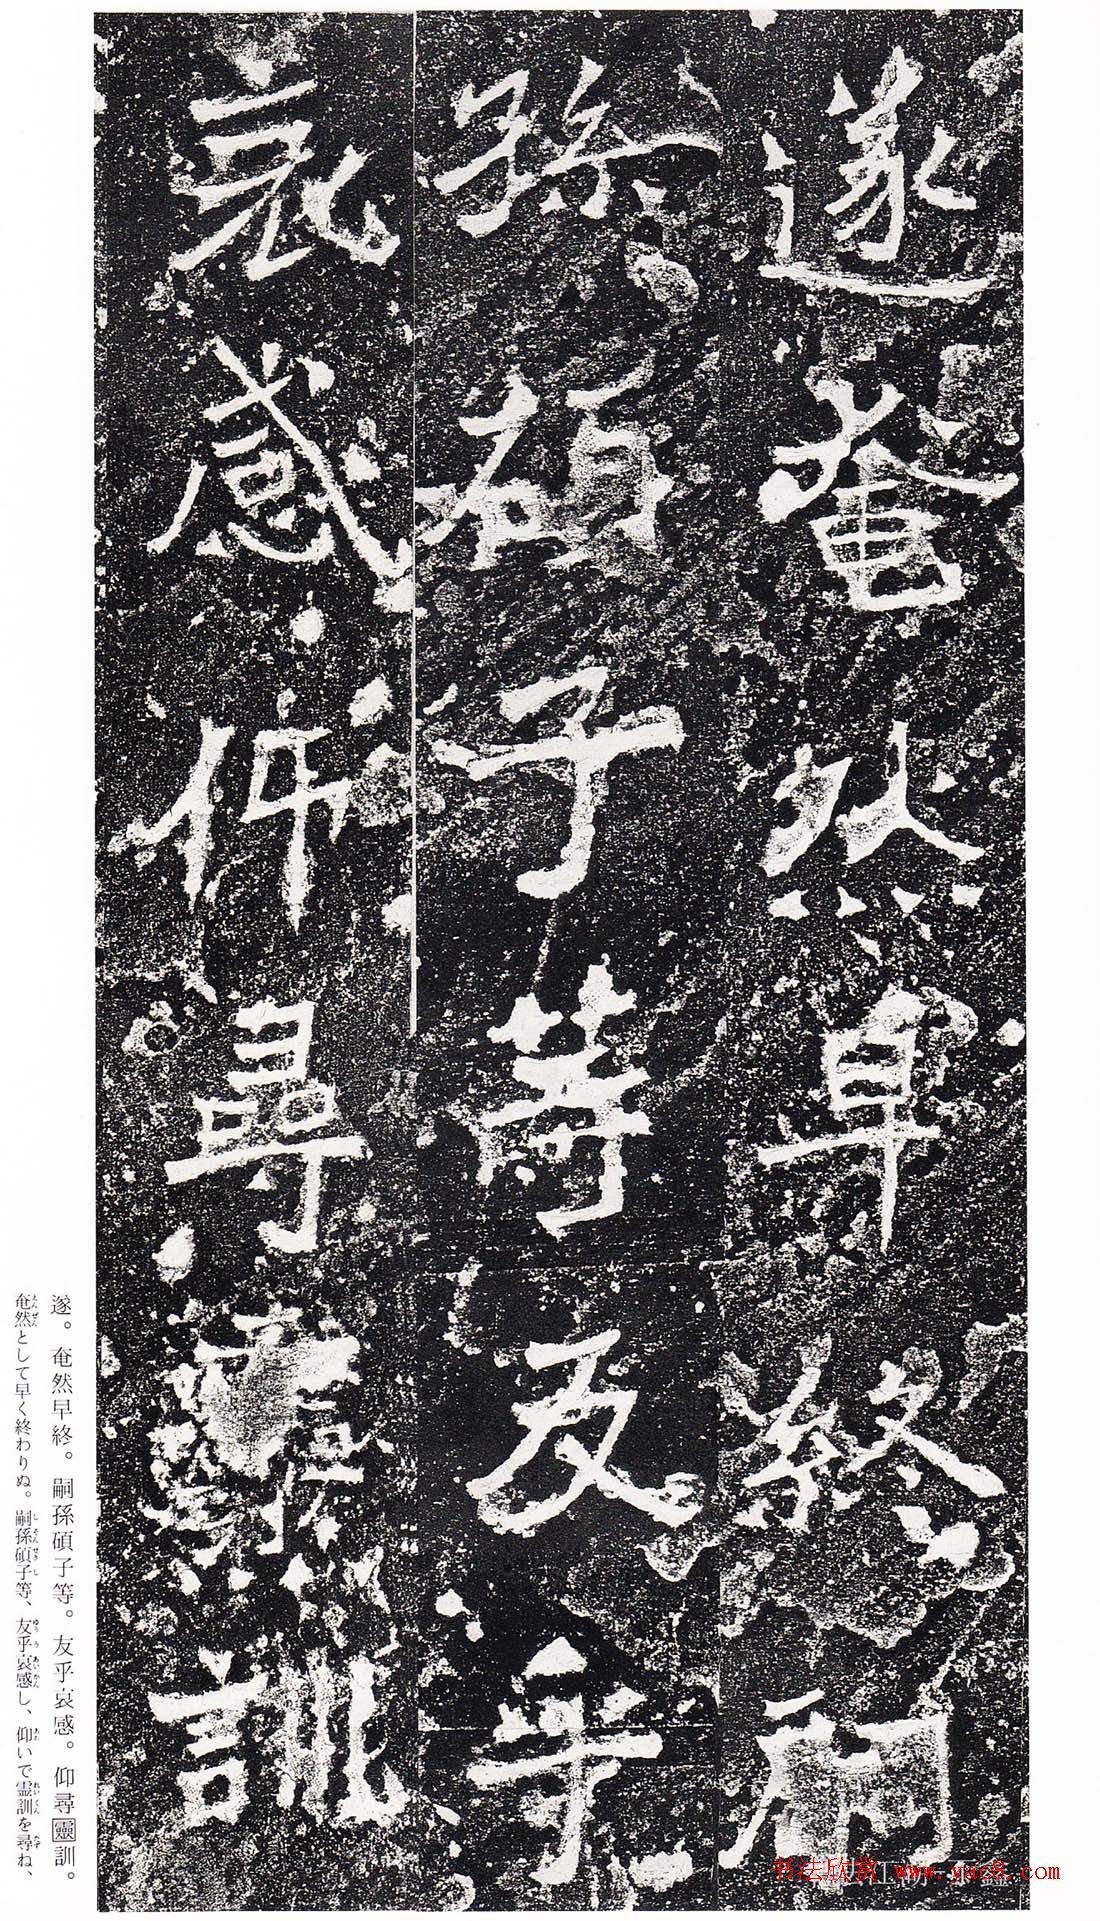 遂奄然早終嗣
孫碩子等友乎
哀感仰尋靈訓
遂。奄然早終。嗣孫碩子等。友乎哀感。仰尋靈訓。
奄然として早く終わりぬ。嗣孫碩子等、友乎哀感し、仰いで霊訓を尋ね、
书法欣赏 www.yac8.com